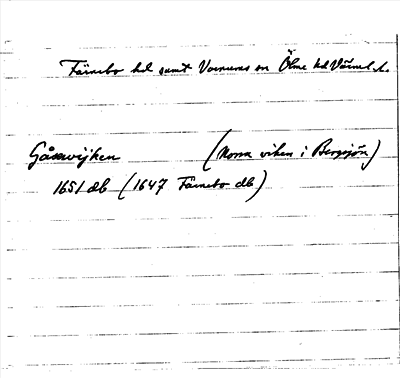 Färnebo hd samt Varnums sn Ölme hd Värml. l.
Gåsswijken (Norra viken i Bergsjön)
1651 db (1647 Färnebo db)